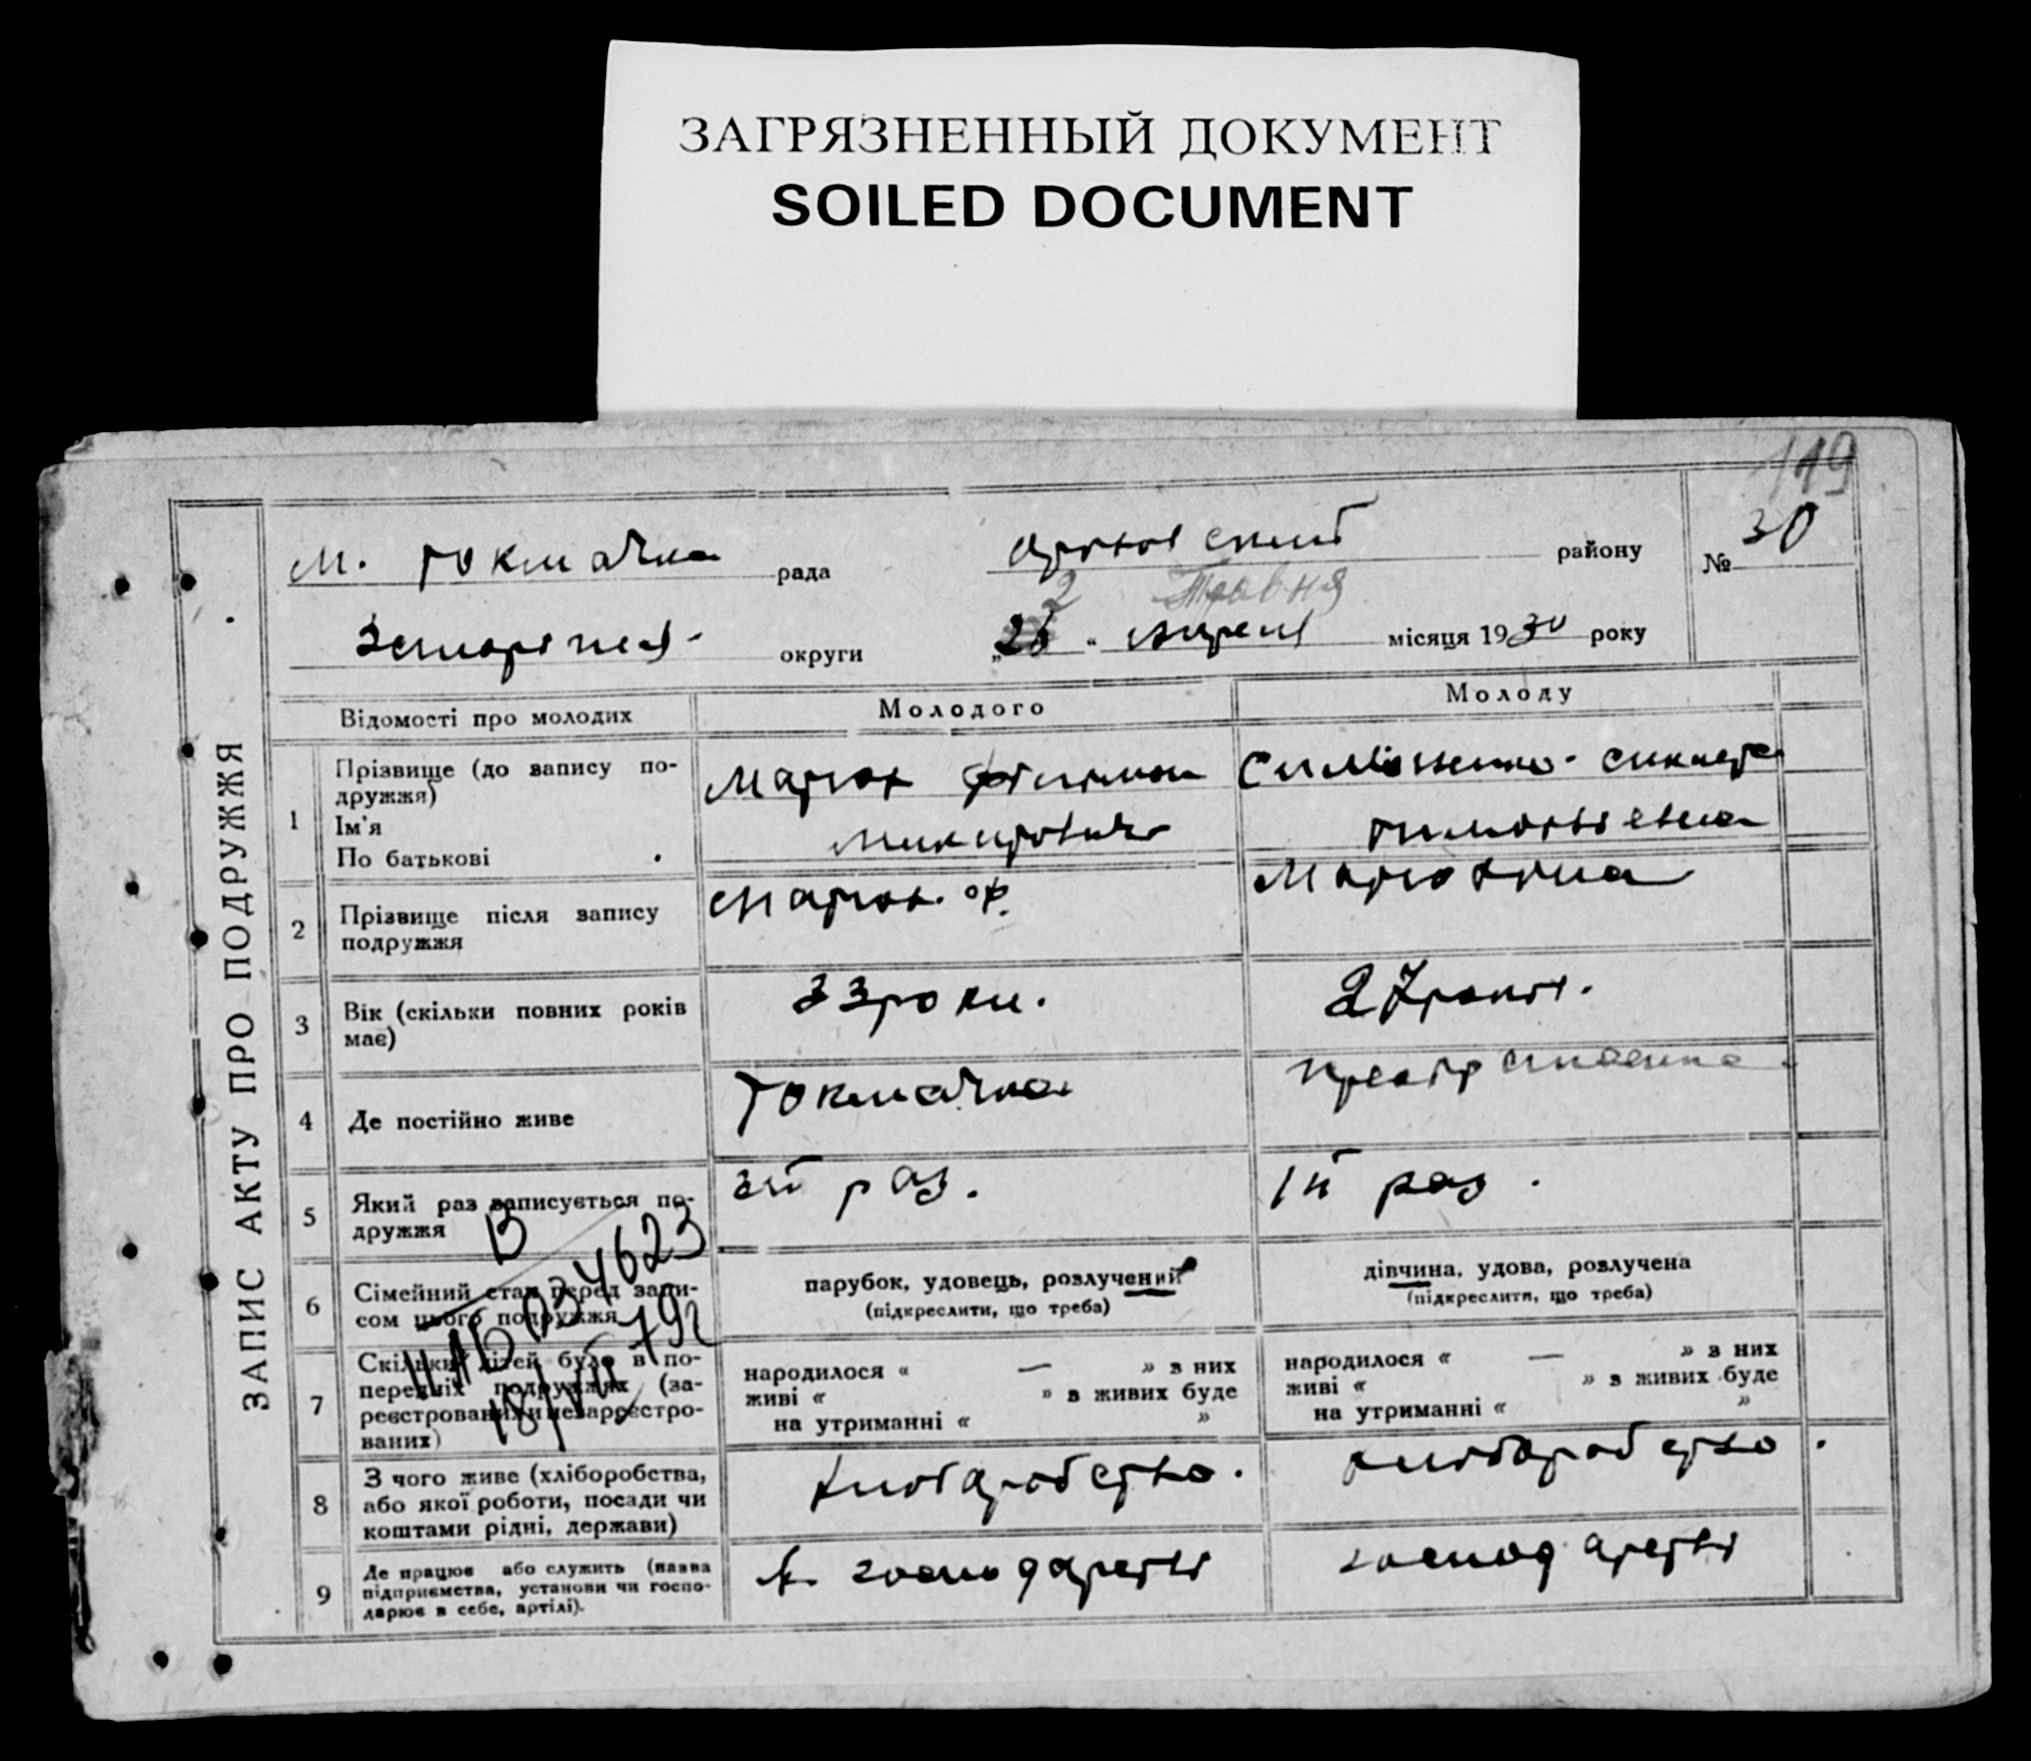 ЗАГРЯЗНЕННЫЙ ДОКУМЕНТ
SOILED DOCUMENT
119
ЗАПИС АКТУ ПРО ПОДРУЖЖЯ
М. Токмачка рада
району
№ 30
2 Травня
округи
„26“ апреля місяця 1930 року
Відомості про молодих
Молодого
Молоду
1
Прізвище (до запису по-
дружжя)
Ім'я
По батькові
Марюх
Микитович
Симоненко
Тимофіевна
2
Прізвище після запису
подружжя
Марюх Ф.
Марюхина
3
Вік (скільки повних років
має)
33 роки.
27 років.
4
Де постійно живе
Токмачка
5
Який раз записується по-
дружжя
2й раз.
1й раз.
6
Сімейний стан перед запи-
сом цього подружжя
парубок, удовець, розлучений
(підкреслити, що треба)
дівчина, удова, розлучена
(підкреслити, що треба)
7
Скільки дітей було в по-
передніх подружжях (за-
реєстрованих и незареєстро-
ваних)
народилося « — » з них
живі « » в живих буде
на утриманні « »
народилося « — » з них
живі « » в живих буде
на утриманні « »
8
З чого живе (хліборобства,
або якої роботи, посади чи
коштами рідні, держави)
хліборобство.
хліборобство.
9
Де працює або служить (назва
підприємства, установи чи госпо-
дарює в себе, артілі).
в господарстві
господарстві